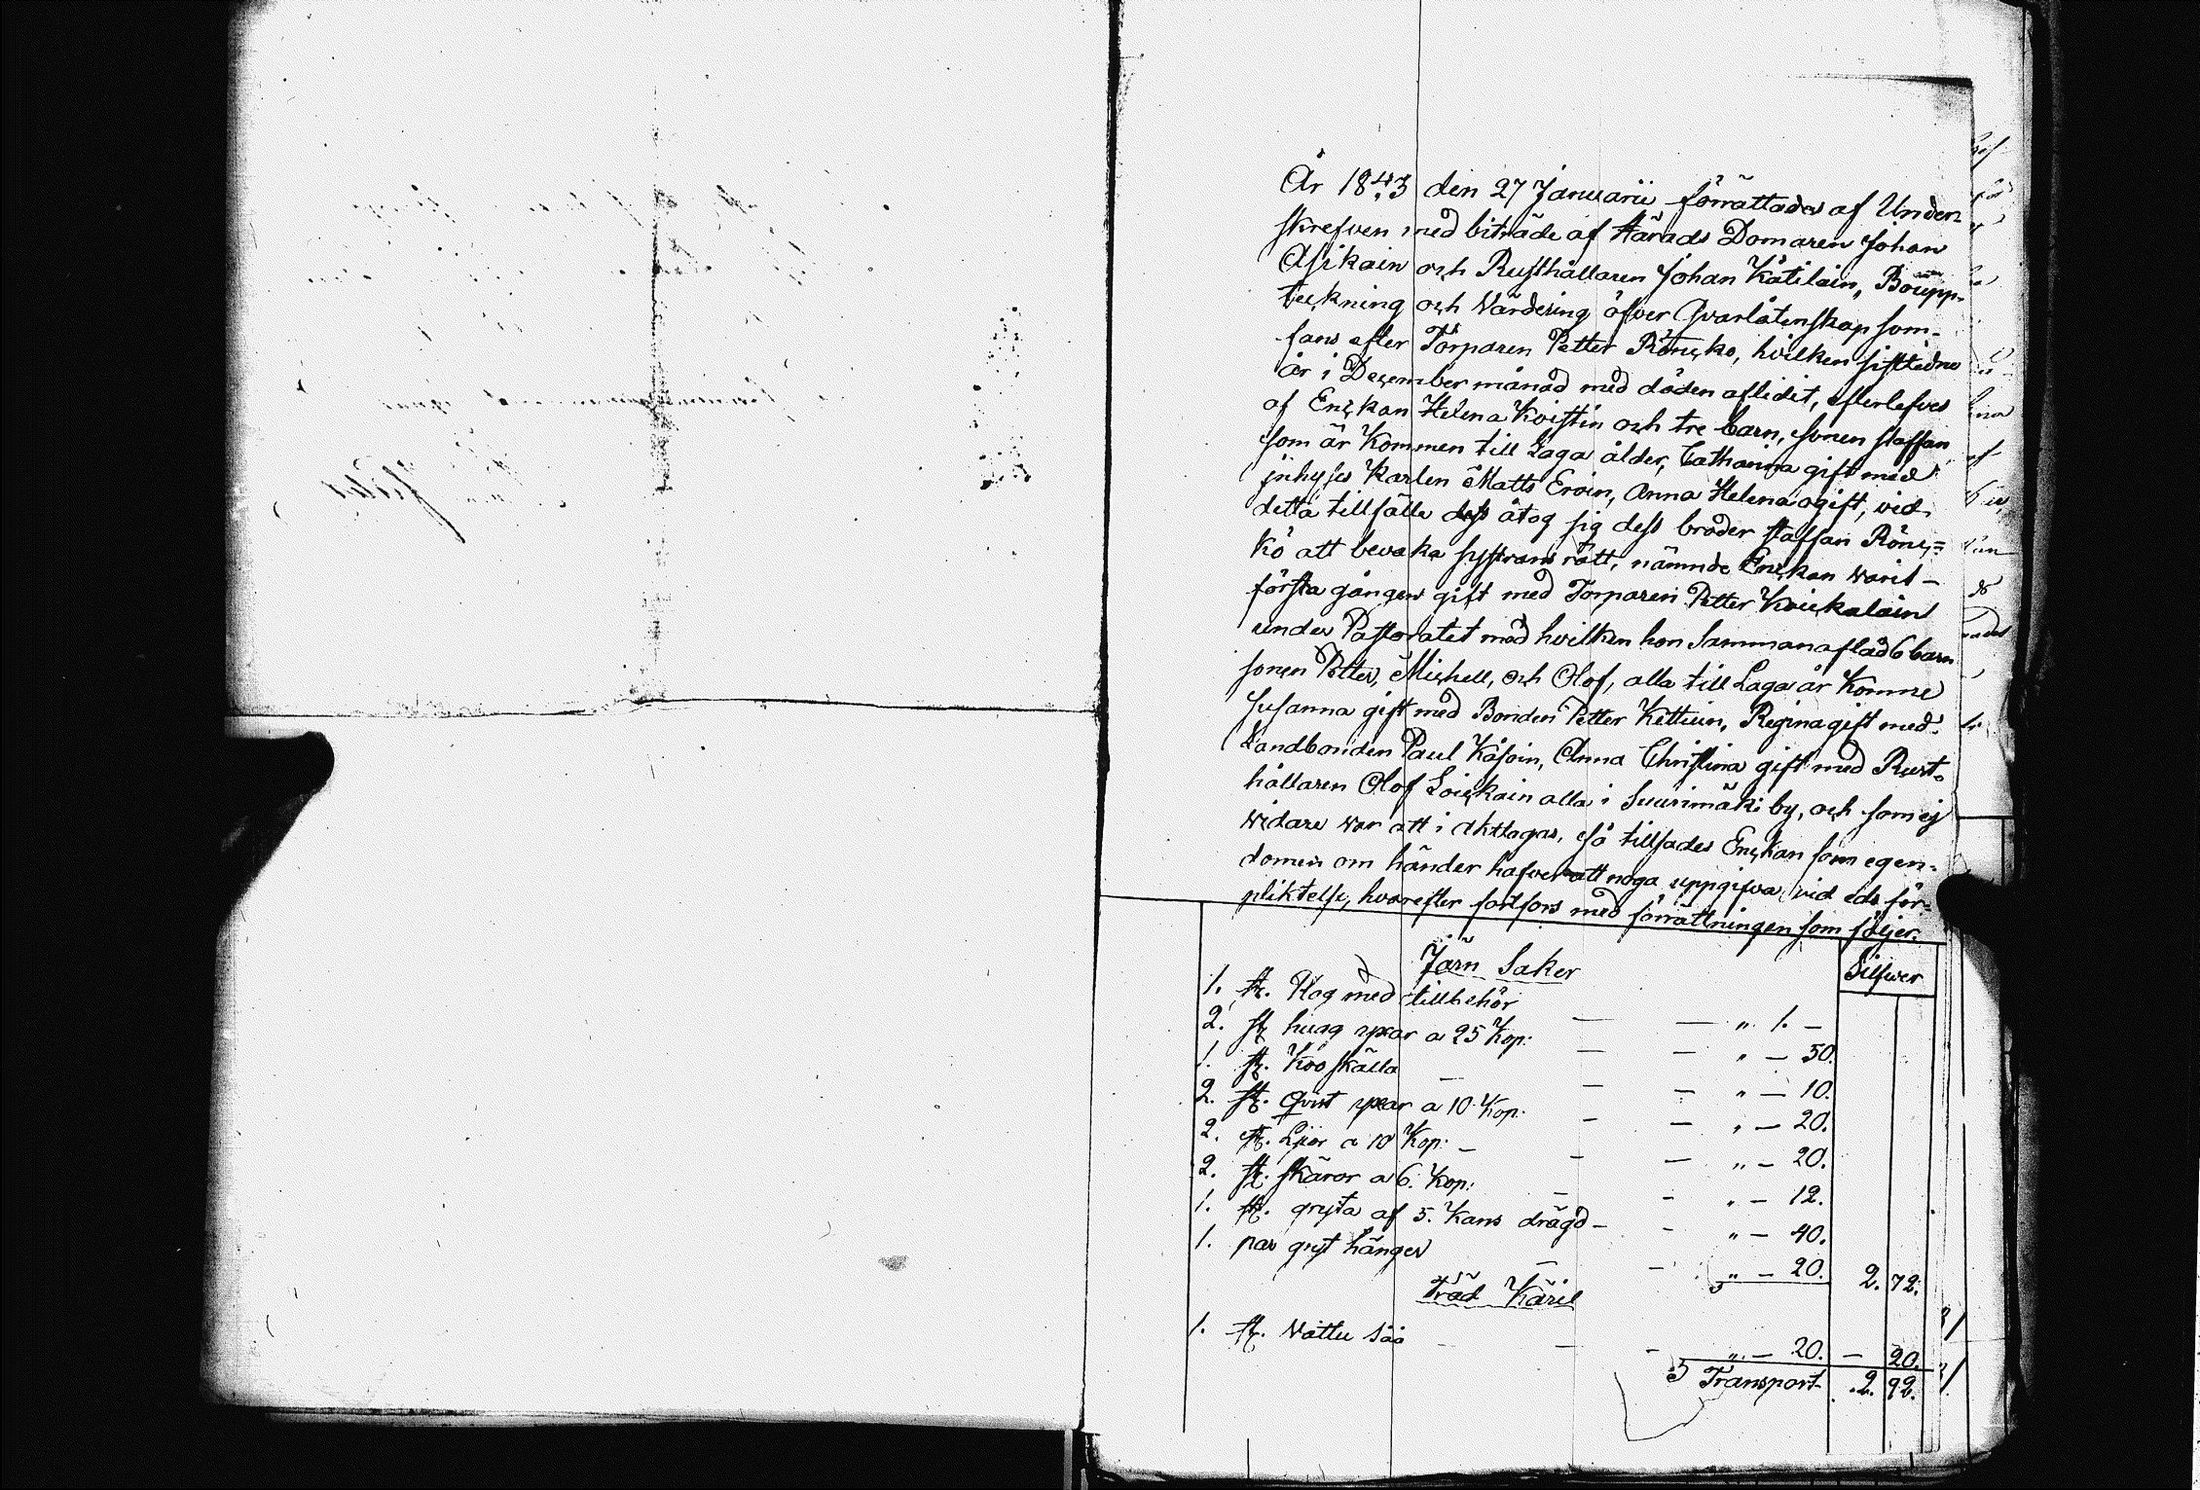 År 1843 den 27 Januarii förrättades af Under-
skrefven med biträde af Härads Domaren Johan
Asikain och Rusthållaren Johan Kätilain, Boupp-
teckning och Värdering öfver Qvarlåtenskap som
fans efter Torparen Petter Rönckö, hvilken sistledne
år i December månad med döden aflidit, efterlefves
af Enckan Helena Kvistin och tre barn, sonen Staffan
som är Kommen till Laga ålder, Catharina gift med
jnhyses Karlen Matts Eroin, Anna Helena ogift, vid
detta tillfälle åtog sig dess broder Staffan Rönc-
kö att bevaka systrans rätt, nämnde Enckan varit
första gången gift med Torparen Petter
under Pastoratet med hvilken hon Sammanaflad 6 barn
sonen Petter, Michell, och Olof, alla till Laga år Komne
Susanna gift med Bonden Petter Kettuin, Regina gift med
Landbonden Paul Käsoin, Anna Christina gift med Rust-
hållaren Olof Loickain alla i Suurimäki by, och som ej
vidare var att i akttagas, så tillsades Enckan som egen-
domen om händer hafver att noga uppgifva vid eds för-
pliktelse, hvarefter fortfors med förrättningen som följer:
Järn Saker
Silfver
1. st. Plog med tillbehör — — " 1. —
2. st hugg yxar a 25 Kop: — — " — 50.
1. st. Koo skälla — — — " — 10.
2. st. Qvist yxar a 10 Kop: — — " — 20.
2. st. Liior a 10 Kop: — — — " — 20.
2. st. Skäror a 6. Kop: — — " — 12.
1. st. gryta af 5. Kans drägd — — " — 40.
1. par gryt hänger — — " — 20. 2. 72.
träd Käril
1. st. Vattu såå — — — " — 20. — 20.
Transport 2. 92.